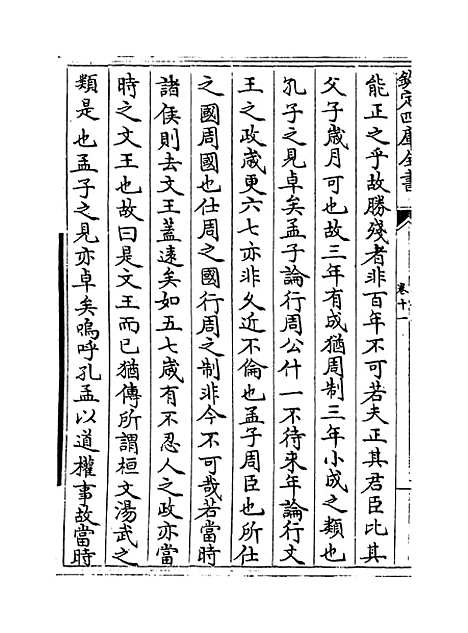 欽定四庫全書
卷十一
能正之乎故勝殘者非百年不可若夫正其君臣比其
父子歲月可也故三年有成猶周制三年小成之類也
孔子之見卓矣孟子論行周公什一不待來年論行文
王之政歲更六七亦非久近不倫也孟子周臣也所仕
之國周國也仕周之國行周之制非今不可哉若當時
諸侯則去文王蓋遠矣如五七歲有不忍人之政亦當
時之文王也故曰是文王而已猶傳所謂桓文湯武之
類是也孟子之見亦卓矣嗚呼孔孟以道權事故當時